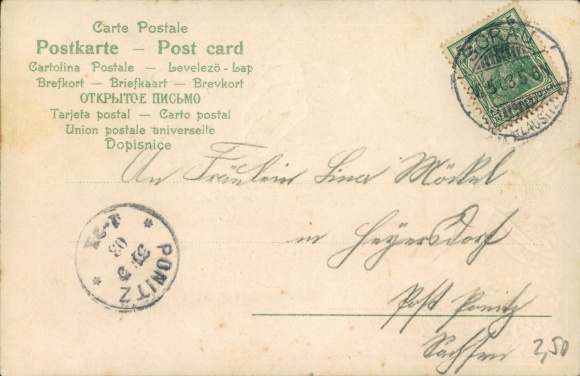 Carte Postale
Postkarte — Post card
Cartolina Postale — Levelezö-Lap
Brefkort — Briefkaart — Brevkort
ОТКРЫТОЕ ПИСЬМО
Tarjeta postal — Carto postal
Union postale universelle
Dopisnice
SORAU
LAUSITZ
An Fräulein Lina Möckel
in Heyersdorf
Post Ponitz
Sachsen
PONITZ
03
2,50